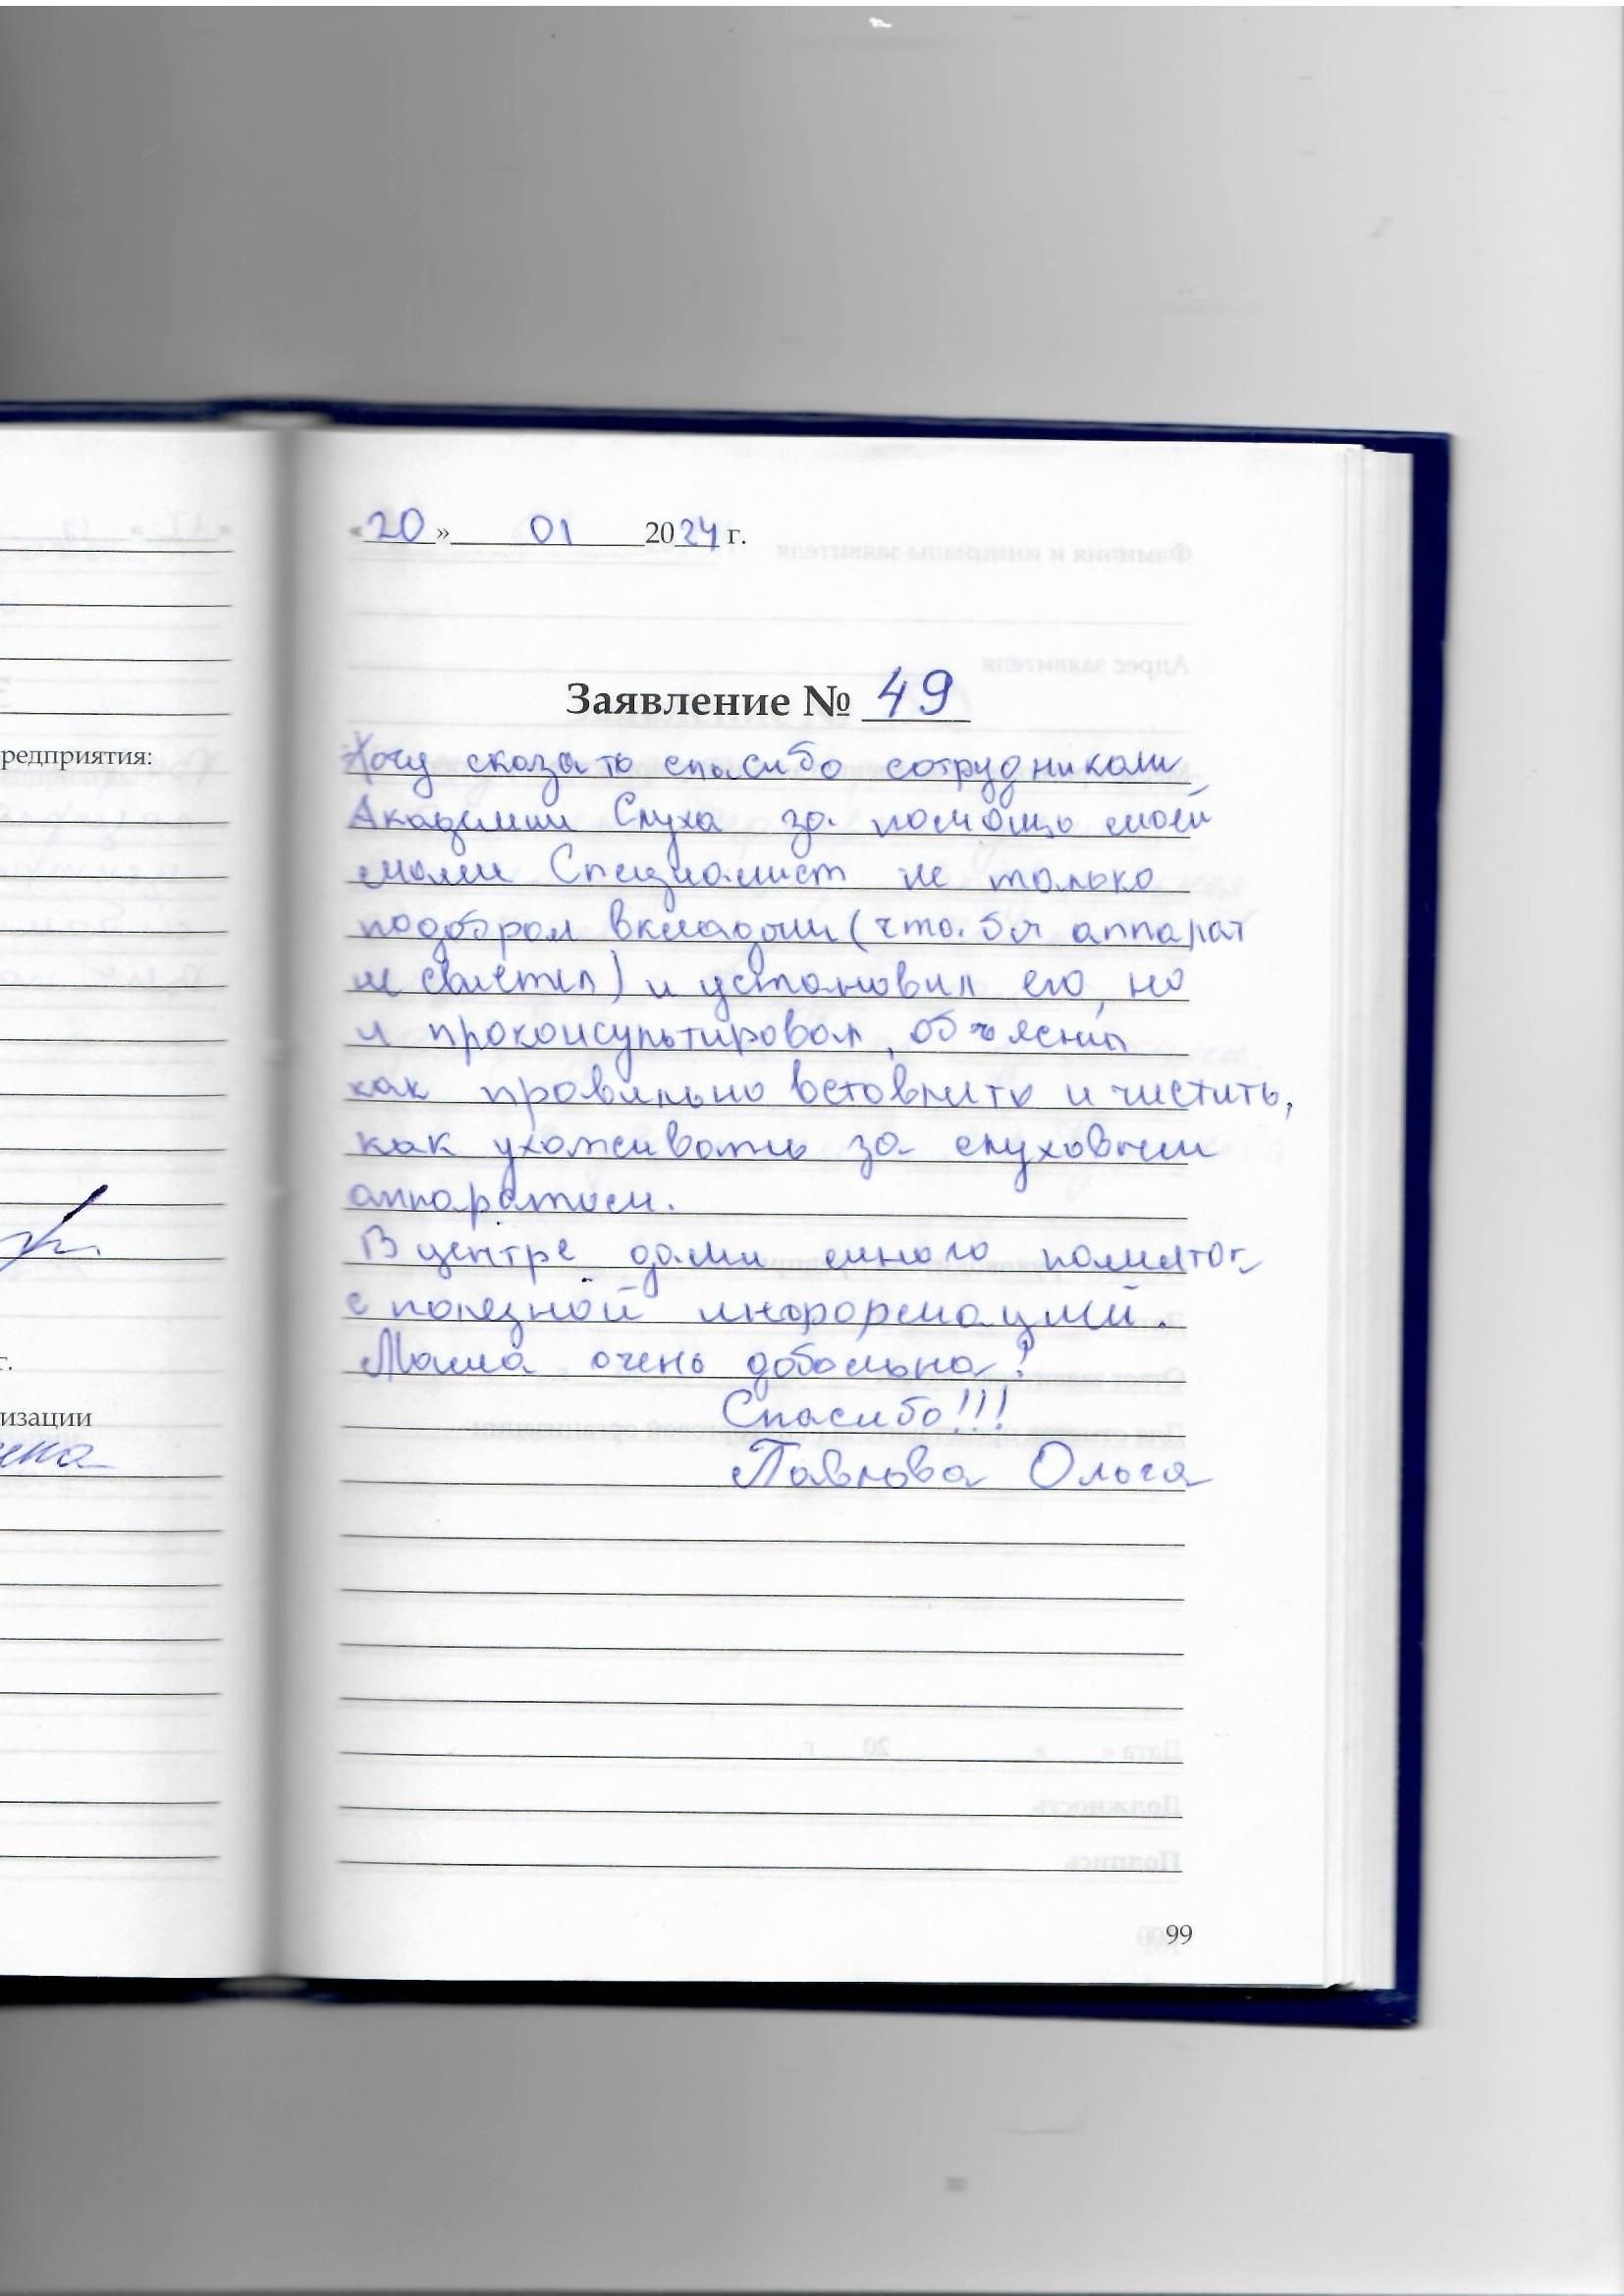 «20» 01 2024 г.
Заявление № 49
Хочу сказать спасибо сотрудникам
Академии Слуха за помощь моей
маме Специалист не только
подобрал вкладыш (что бы аппарат
не свистел) и установил его, но
и проконсультировал, объяснил
как правильно вставлять и чистить,
как ухаживать за слуховым
аппаратом.
В центре дали много памяток
с полезной информацией.
Мама очень довольна!
Спасибо!!!
Павлова Ольга
99
редприятия:
г.
изации